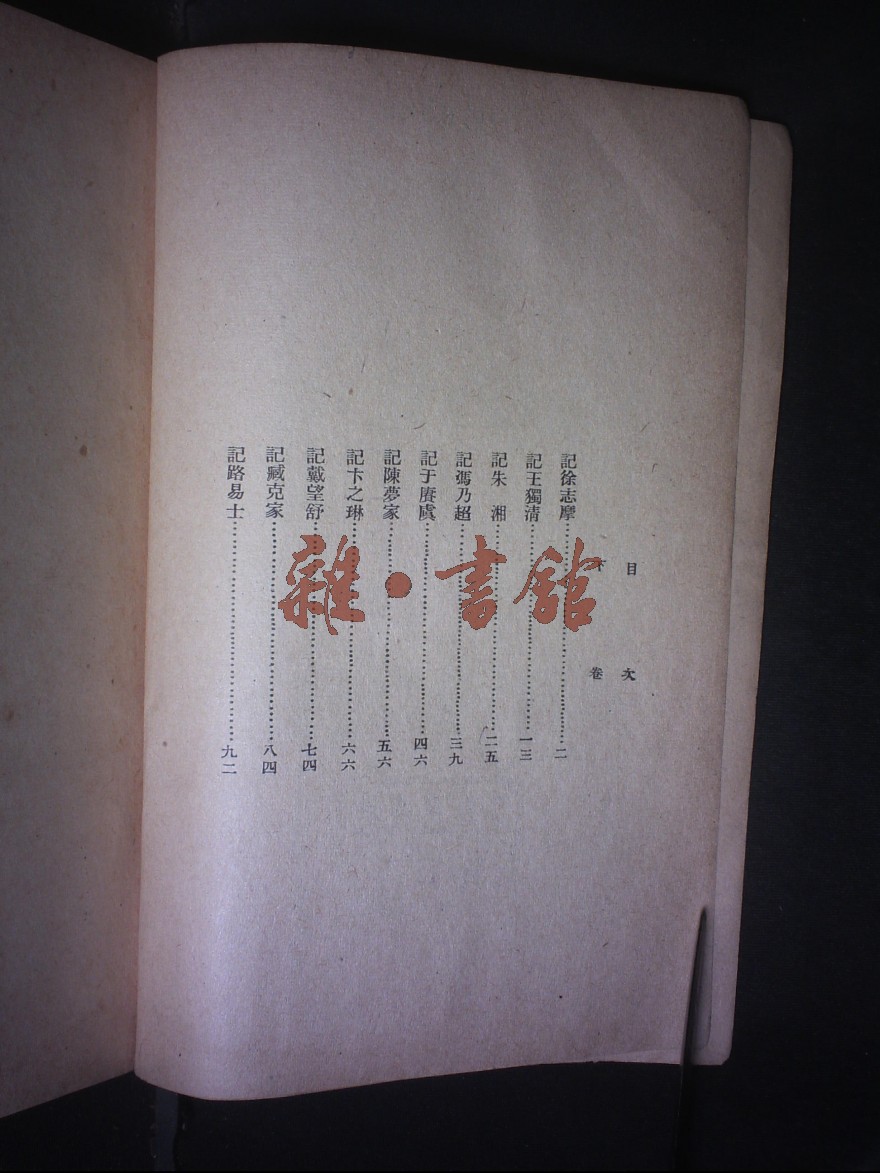 目次
卷
記徐志摩……………………二
記王獨清……………………一三
記朱　湘……………………二五
記馮乃超……………………三九
記于賡虞……………………四六
記陳夢家……………………五六
記卞之琳……………………六六
記戴望舒……………………七四
記臧克家……………………八四
記路易士……………………九二
雜•書館